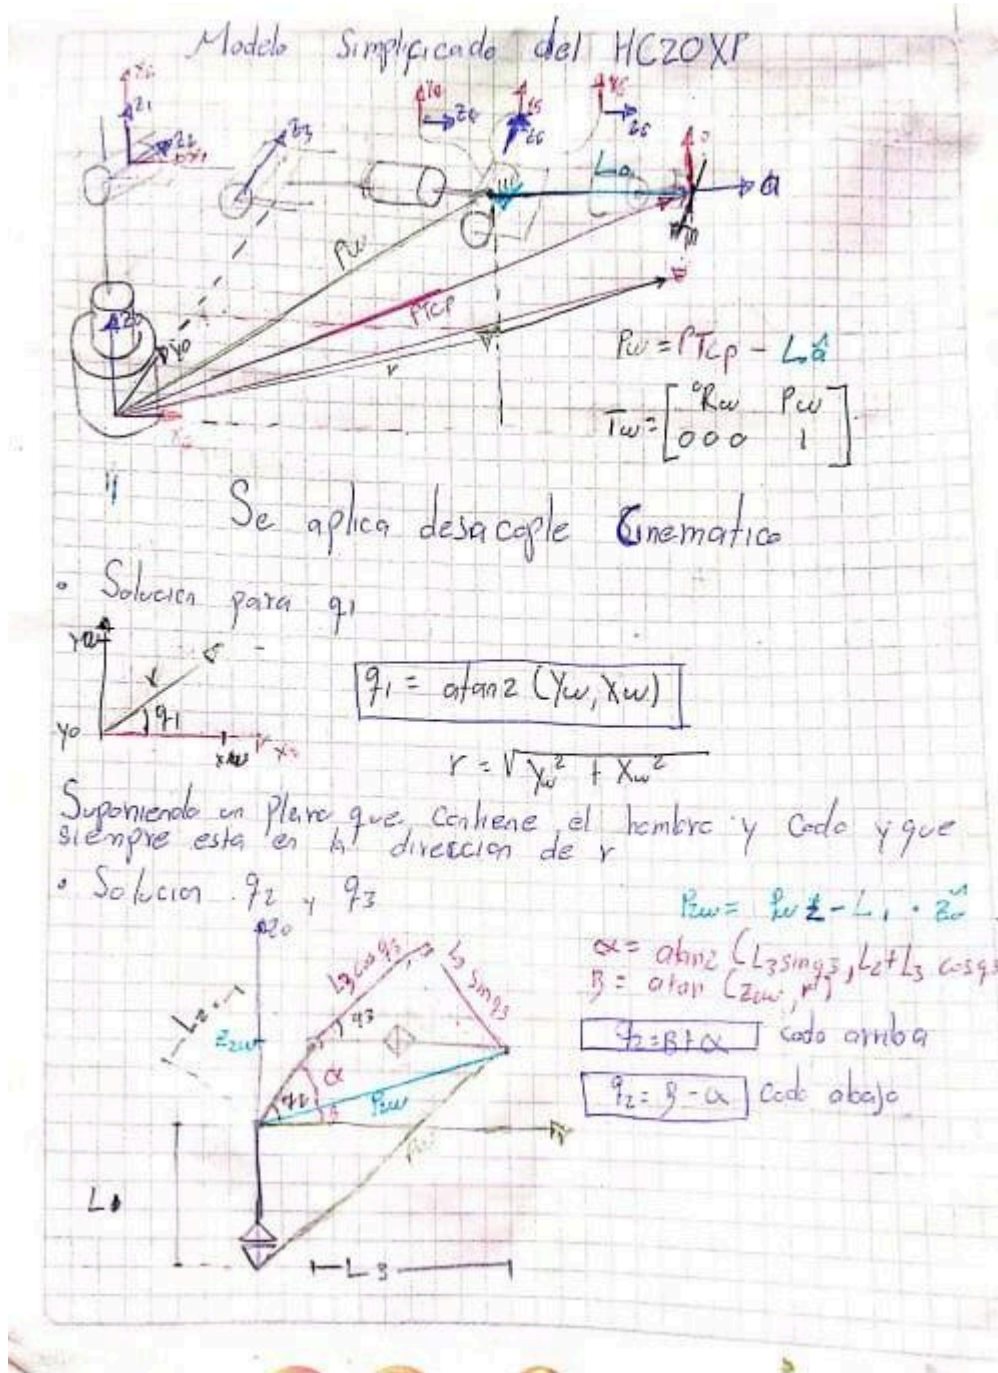 Modelo Simplificado del HC20XP
Z1
Z2
Z3
Z4
Z6
La
a
Pw
PTCP
r
Z0
Y0
X0
Pw = PTcp - Lâ
Tw = [ ⁰Rw Pw
0 0 0 1 ]
Se aplica desacople Cinematico
• Solucion para q1
r
q1
Y0
q1 = atan2 (Yw, Xw)
r = √Yw² + Xw²
Suponiendo un plano que contiene el hombro y Codo y que
siempre esta en la direccion de r
• Solucion q2 y q3
P2w = Pwz - L1 · Z0
α = atan2 (L3 sinq3, L2+L3 cosq3
β = atan (Z2w, r)
q2 = β+α codo arriba
q2 = β - α codo abajo
Z0
L3 cosq3
L3 sinq3
L2
q3
Z2w
α
q2
β
P2w
Pw
r
L1
L3